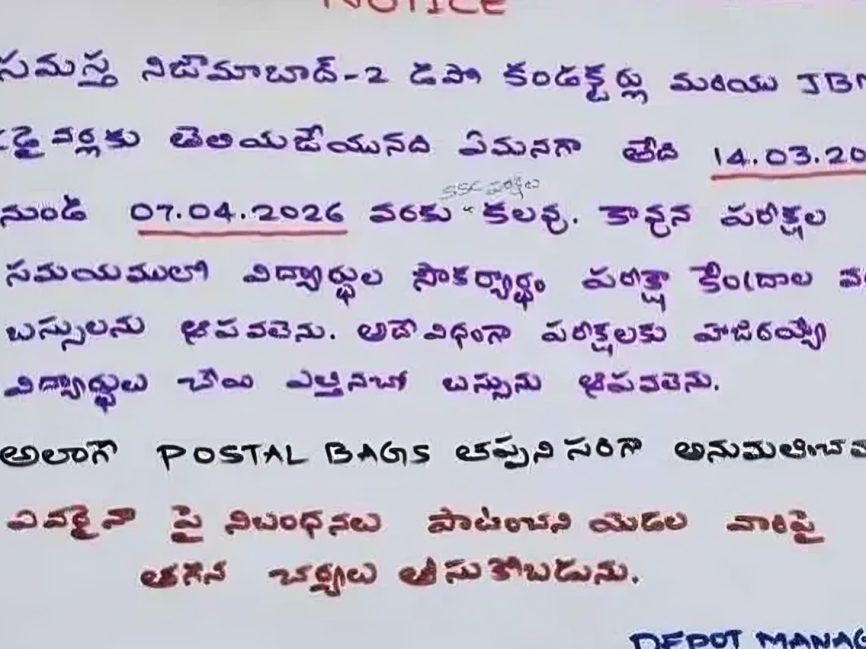 NOTICE
సమస్త నిజామాబాద్-2 డిపో కండక్టర్లు మరియు JBM
డ్రైవర్లకు తెలియజేయునది ఏమనగా తేది 14.03.20
SSC పరీక్షలు
నుండి 07.04.2026 వరకు కలవు. కావున పరీక్షల
సమయములో విద్యార్థుల సౌకర్యార్థం పరీక్షా కేంద్రాల
బస్సులను ఆపవలెను. అదేవిధంగా పరీక్షలకు హాజరయ్యే
విద్యార్థులు చేయి ఎత్తినచో బస్సును ఆపవలెను.
అలాగే POSTAL BAGS తప్పనిసరిగా
ఎవరైనా పై నిబంధనలు పాటించని యెడల వారిపై
తగిన చర్యలు తీసుకోబడును.
DEPOT MANAG